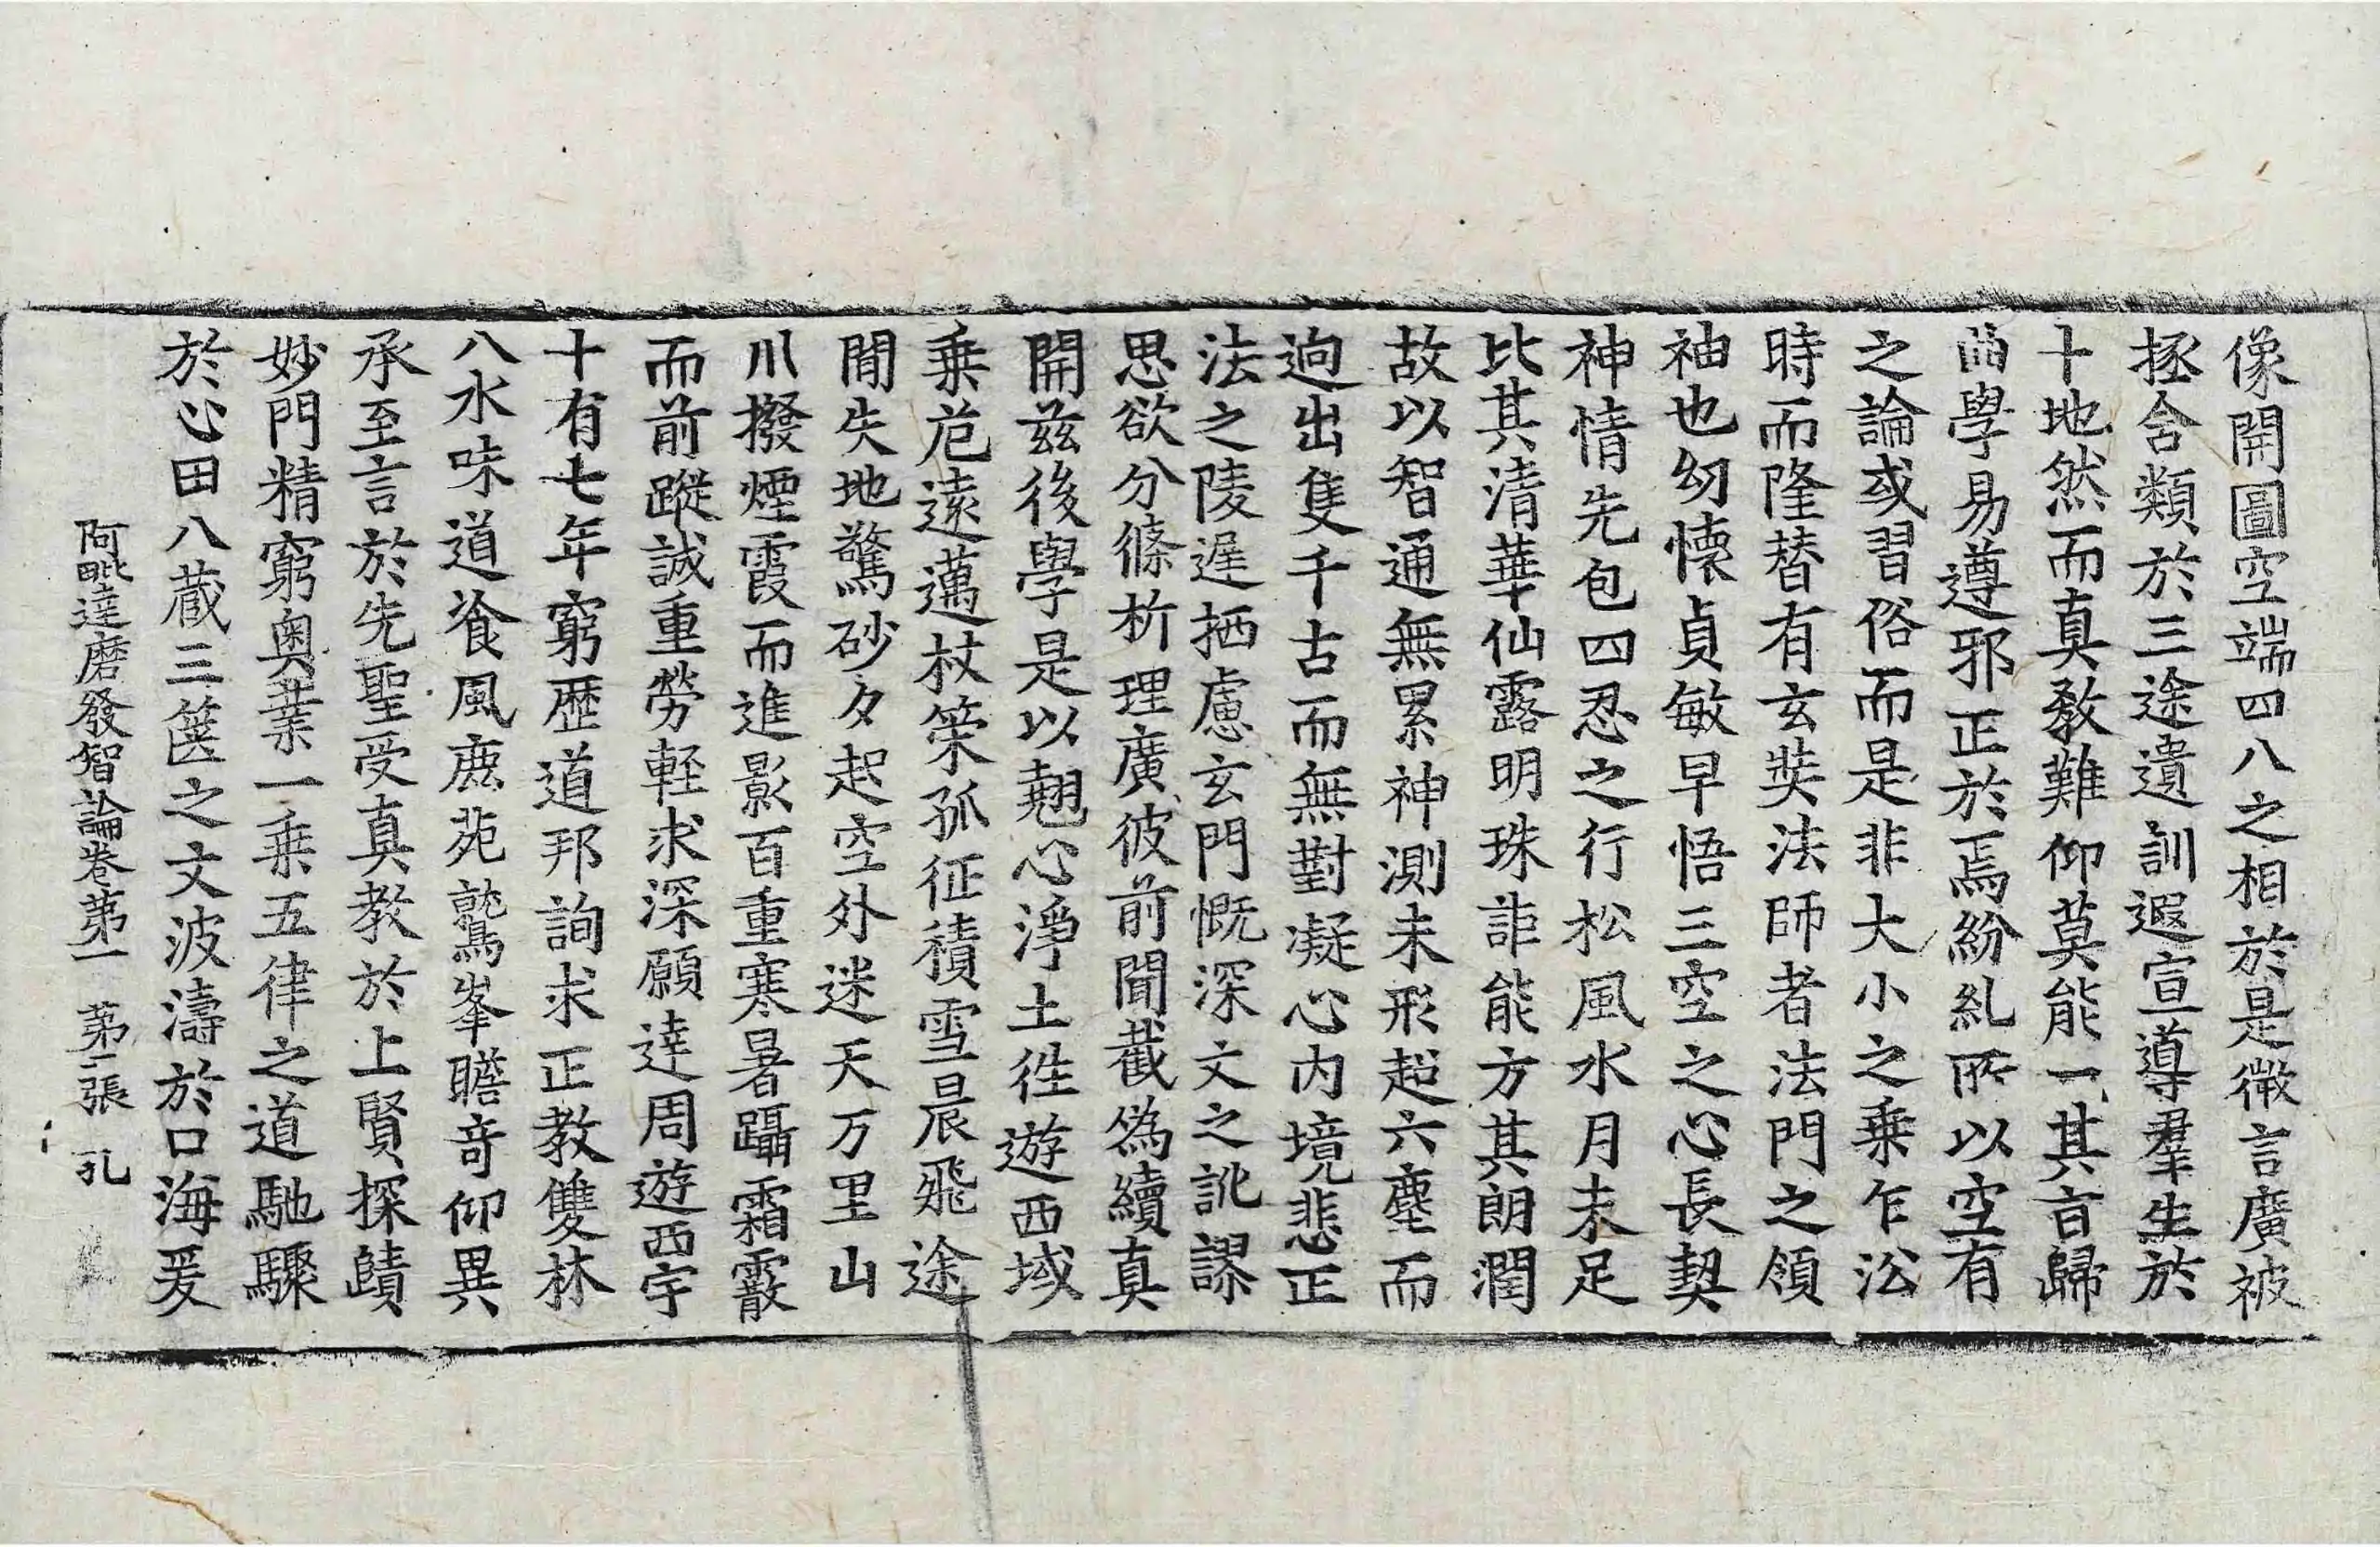 像開圖空端四八之相於是微言廣被
拯含類於三途遺訓遐宣導羣生於
十地然而真教難仰莫能一其旨歸
曲學易遵邪正於焉紛糺所以空有
之論或習俗而是非大小之乘乍沿
時而隆替有玄奘法師者法門之領
袖也幼懷貞敏早悟三空之心長契
神情先包四忍之行松風水月未足
比其清華仙露明珠詎能方其朗潤
故以智通無累神測未形超六塵而
逈出隻千古而無對凝心內境悲正
法之陵遲栖慮玄門慨深文之訛謬
思欲分條析理廣彼前聞截僞續真
開茲後學是以翹心淨土徃遊西域
乗危遠邁杖策孤征積雪晨飛途
閒失地驚砂夕起空外迷天万里山
川撥煙霞而進影百重寒暑躡霜霰
而前蹤誠重勞輕求深願達周遊西宇
十有七年窮歷道邦詢求正教雙林
八水味道飡風鹿苑鷲峯瞻奇仰異
承至言於先聖受真教於上賢探賾
妙門精窮奧業一乗五律之道馳驟
於心田八蔵三篋之文波濤於口海爰
阿毗達磨發智論卷第一 第二張 孔